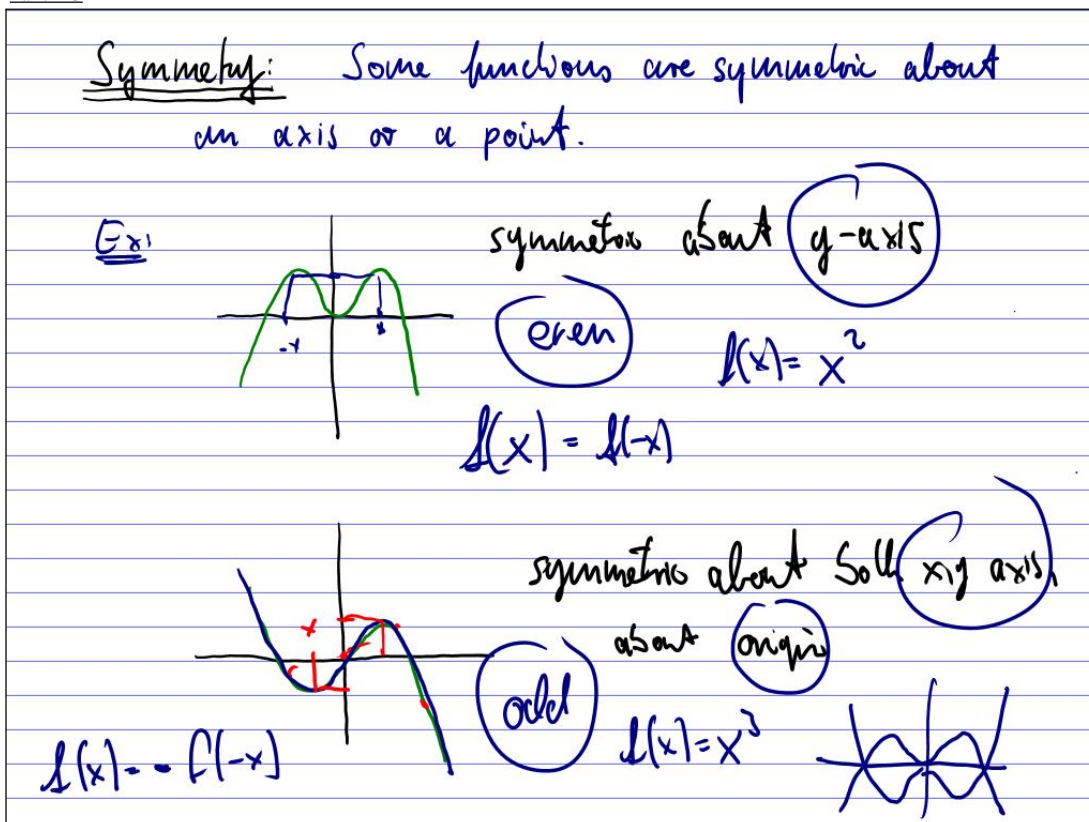 Symmetry: Some functions are symmetric about
an axis or a point.
Ex:
symmetric about y-axis
-x x
even
f(x) = x²
f(x) = f(-x)
symmetric about both x,y axis,
about origin
odd
f(x) = x³
f(x) = - f(-x)